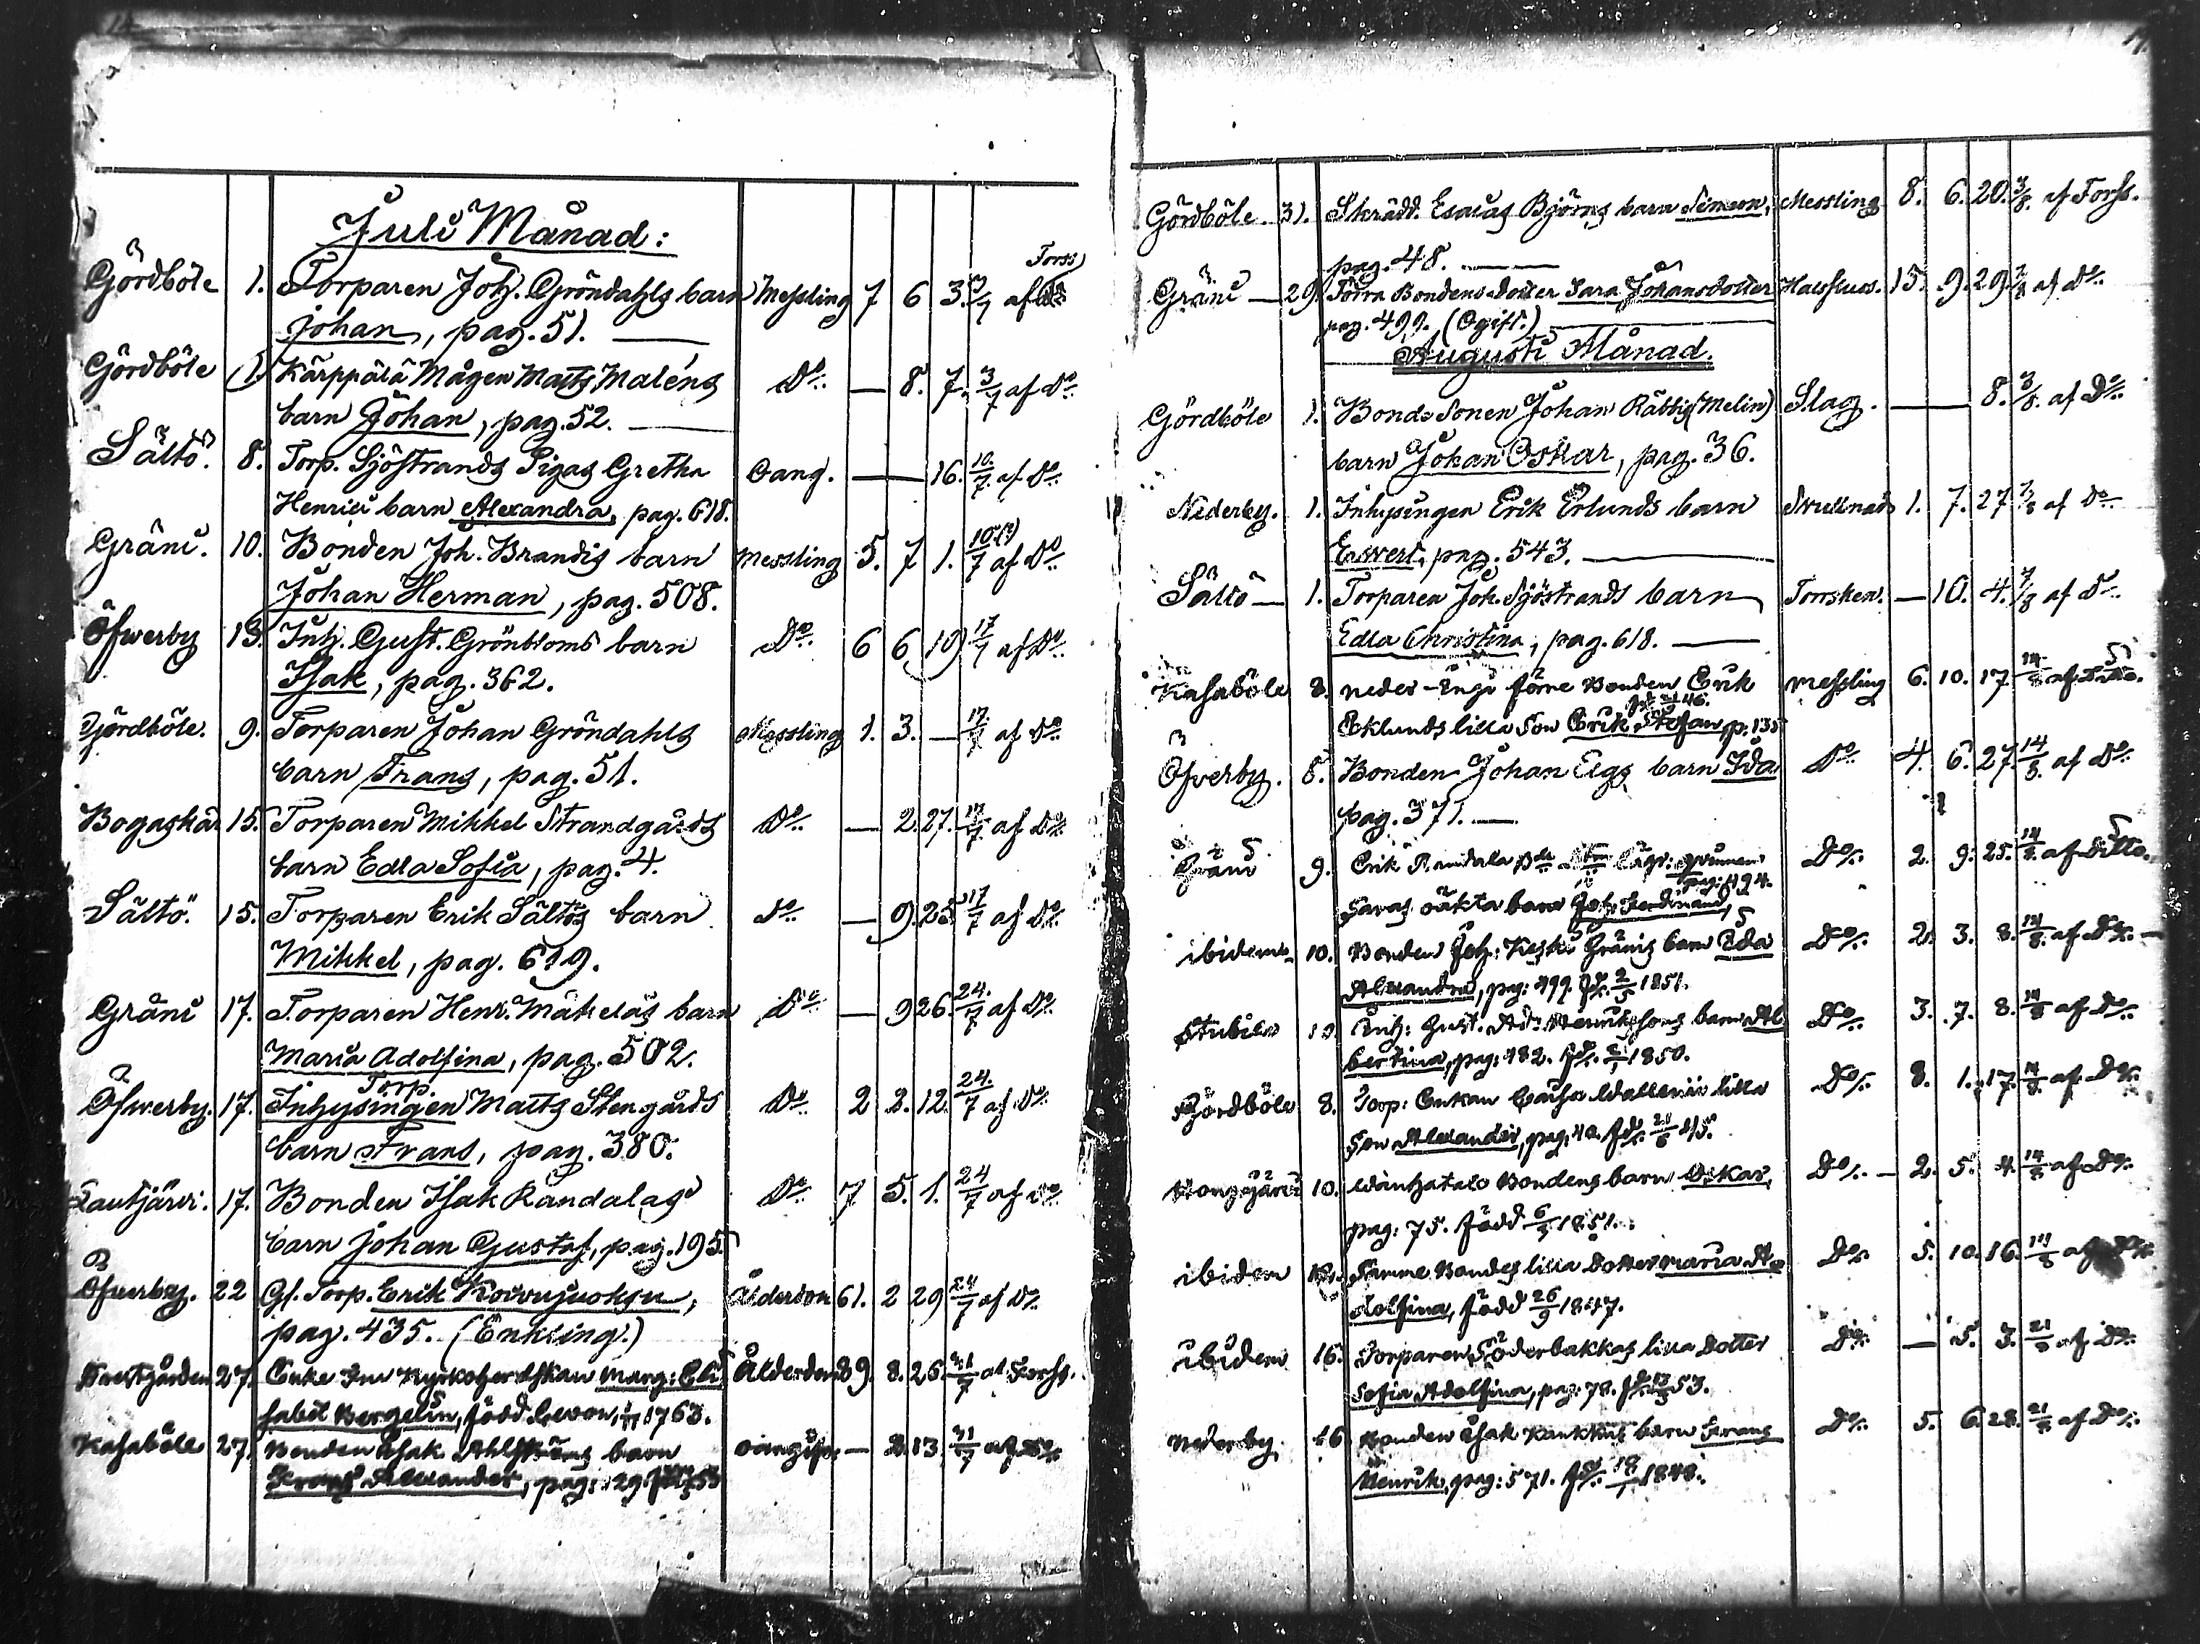 Juli Månad:
Gördböle 1. Torparen Joh. Gröndahls barn Messling 7 6 3. 3/7 af Forss
Johan, pag. 51.
Gördböle 1. Kärppälä Mågen Matts Maléns Do — 8. 7. 3/7 af Do
barn Johan, pag. 52.
Sältö. 8. Torp. Sjöstrands Pigas Gretha Oang. — 16. 10/7 af Do
Henrici barn Alexandra, pag. 618.
Gräni. 10. Bonden Joh. Brandis barn Messling 5. 7 1. 10/7 af Do
Johan Herman, pag. 508.
Öfwerby 13. Inh. Gust. Grönbloms barn Do 6 6 19 17/7 af Do
Isak, pag. 362.
Gördböle. 9. Torparen Johan Gröndahls Messling 1. 3. — 17/7 af Do
barn Frans, pag. 51.
Bogaskär 15. Torparen Mikkel Strandgårds Do — 2. 27. 17/7 af Do
barn Edla Sofia, pag. 4.
Sältö. 15. Torparen Erik Sältös barn Do — 9. 25. 17/7 af Do
Mikkel, pag. 619.
Gräni 17. Torparen Henr. Mäkeläs barn Do — 9 26. 24/7 af Do
Maria Adolfina, pag. 502.
Torp.
Öfwerby. 17. Inhysingen Matts Stengårds Do 2 2. 12. 24/7 af Do
barn Frans, pag. 380.
Lautjärvi. 17. Bonden Isak Randalas Do 7 5. 1. 24/7 af Do
barn Johan Gustaf, pag. 195
Öfwerby. 22 Gl. Torp. Erik Korvujuoksu, Ålderdom 61. 2 29 24/7 af Do
pag. 435. (Enkling.)
Prestgården 27. Enke Fru Kyrkoherdskan Marg: Eli Ålderdom 89. 8. 26. 31/7 af Forss.
sabet Bergelin, född Levon, 1763.
Kasaböle 27. Bonden Isak Ahlskärs barn — 2. 13. 31/7 af Do
Frans Alexander, pag: 129.
Gördböle 31. Skrädd. Esaias Björns barn Simeon, Messling 8. 6. 20. 3/8. af Forss.
pag. 48.
Gräni — 29. Förra Bondens dotter Sara Johansdotter 15. 9. 29. 7/8 af Do
pag. 499. (Ogift.)
Augusti Månad.
Gördböle 1. Bonde Sonen Johan Räbbs (Melin) Slag. — 8. 3/8. af Do
barn Johan Oskar, pag. 36.
Nederby. 1. Inhysingen Erik Erlunds barn 1. 7. 27 7/8 af Do
Eswert, pag. 543.
Sältö — 1. Torparen Joh. Sjöstrands barn Torrsken. — 10. 4. 7/8 af Do
Edla Christina, pag. 618.
Kasaböle 8. Neder-Inga förre Bonden Erik Messling 6. 10. 17 14/8 af Ditto.
Ecklunds lilla Son Erik Stefan, p. 135
Öfwerby. 8. Bonden Johan Elgs barn Ida Do 4. 6. 27. 14/8. af Do
pag. 371.
Gräni 9. Erik Randala Do 2. 9. 25. 14/8. af Ditto.
Saras oäkta barn Joh. Ferdinand, pag: 494.
ibidem 10. Bonden Joh: Keski Gränis barn Ida Do 2. 3. 8. 14/8. af Do
Alexandra, pag: 499. föd. 2/5 1851.
Stubila 10. Inh: Gust. Ad: Henrikssons barn Al Do 3. 7. 8. 14/8 af Do
bertina, pag: 482. 1850.
Gördböle 8. Torp: Enkan Caisa Wallenii lilla Do 8. 1. 17. 14/8. af Do
Son Alexander, pag: 40. 21/6 45.
10. Wänhatalo Bondens barn Oskar, Do — 2. 5. 4. 14/8 af Do
pag: 75. född 6/3 1851.
ibidem Samme Bondes lilla Dotter Maria A Do 5. 10. 16. 14/8 af Do
dolfina, född 26/9 1847.
ibidem 16. Torparen Söderbakkas lilla Dotter Do — 5. 3. 21/8 af Do
Sofia Adolfina, pag: 78. 53.
Nederby 16 Bonden Isak Kankkus barn Frans Do 5. 6. 28. 21/8 af Do
Henrik, pag: 571. 18/1 1848.